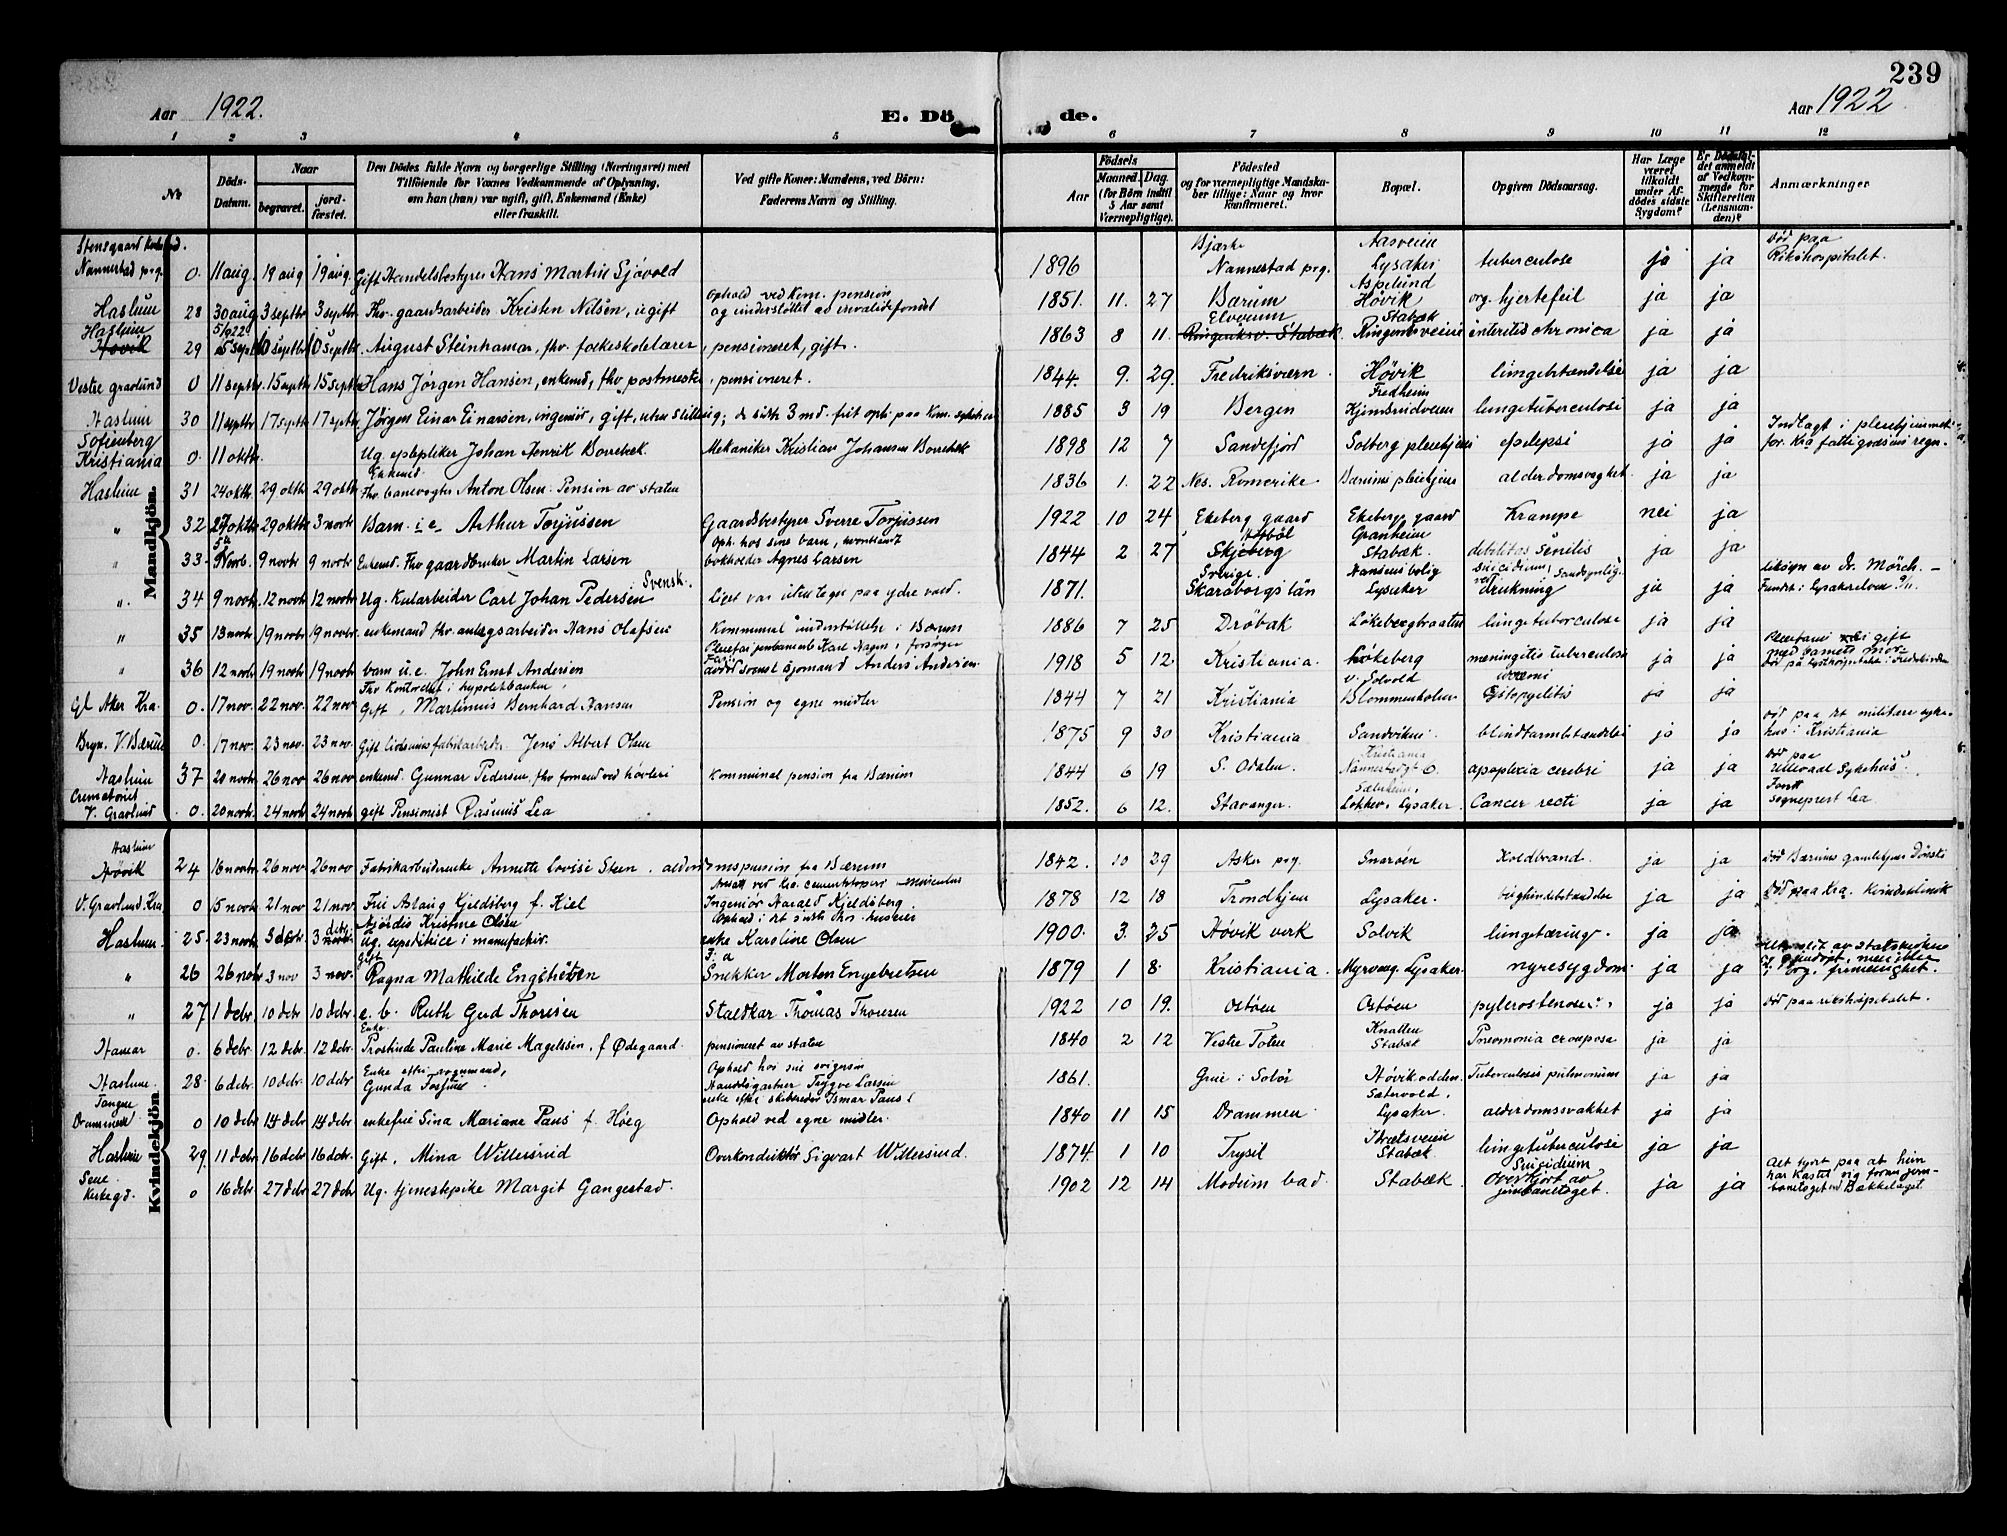 239
Aar 1922. E. Dö de. Aar 1922
1 2 3 4 5 6 7 8 9 10 11 12
No
Döds-Datum.
Naar
begravet.
jord-fæstet.
Den Dödes fulde Navn og borgerlige Stilling (Næringsvei) med
Tilföiende for Voxnes Vedkommende af Oplysning,
om han (hun) var ugift, gift, Enkemand (Enke)
eller fraskilt.
Ved gifte Koner: Mandens, ved Börn:
Faderens Navn og Stilling.
Födsels
Aar
Maaned. Dag
(for Börn indtil
5 Aar samt
Værnepligtige).
Födested
og for værnepligtige Mandska-
ber tillige: Naar og hvor
konfirmeret.
Bopæl.
Opgiven Dödsaarsag.
Har Læge
været
tilkaldt
under Af-
dödes sidste
Sygdom?
Er Dödsfal-
det anmeldt
af Vedkom-
mende for
Skifteretten
(Lensman-
den)?
Anmærkninger
Mandkjön.
Nannestad prg. 0 11 aug. 19 aug 19 aug. Gift Handelsbestyrer Hans Martin Sjøvold 1896 Bjerke Nannestad prg. Aasveien Lysaker tuberculose ja ja Død paa Rikshospitalet.
Haslum 28 30 aug. 3 septbr 3 septbr. Fhv. gaardsarbeider Kristen Nilsen, ugift Ophold ved Kom. pension og understöttet av invalidefondet 1851. 11. 27 Bærum Aspelund Høvik org. hjertefeil ja ja
Haslum Høvik 29 5/9 22 5 sept 10 septbr 10 septbr. August Steinhamar, fhv. folkeskolelærer, pensioneret, gift. 1863 8 11. Elverum Ringeriksv. Stabæk Stabæk Ringeriksveien enteritis chronica ja ja
Vestre gravlund 0 11 septbr. 15 septbr 15 septbr Hans Jørgen Hansen, enkemd, fhv postmester, pensioneret. 1844. 9. 29. Fredriksværn. Høvik lungebetændelse ja ja
Haslum 30 11 septbr 17 septbr 17 septbr. Jørgen Einar Einarsen, ingeniør, gift, uten stilling; de sidste 3 md. frit oph. paa Kom. sykehus 1885 3 19 Bergen Fredheim lungetuberculose ja ja
Sofienberg Kristiania 0. 11 oktb. Ug. eplepliker Johan Henrik Borrebæk. Mekaniker Kristian Johansen Borrebæk 1898 12 7 Sandefjord Solberg pleiehjem epilepsi ja ja Indlagt i pleiehjemmet for Kra fattigvæsens regn.
Haslum 31 24 oktbr 29 oktb 29 oktb Enkemd Fhv banevogter Anton Olsen. Pension av staten 1836 1. 22 Nes. Romerike Bærums pleiehjem alderdomsvaghet. ja ja
" 32 27 oktbr 29 oktbr 3 novbr Barn i e. Arthur Torjussen Gaardsbestyrer Sverre Torjussen 1922 10 24 Ekeberg gaard Ekeberg gaard Krampe nei ja
" 33 Novb. 9 novbr 9 novbr Enkemd. Fhv gaardbruker Martin Larsen Oph. hos sine barn, bokholder Agnes Larsen 1844 2 27 Skjeberg Granheim Stabæk. debilitas senilis ja ja
". 34 9 novbr. 12 novbr 12 novbr Ug. Kularbeider Carl Johan Pedersen Svensk. Liget var uten tegn paa ydre vold. 1871. Sverige. Skaraborgs län Hansens bolig Lysaker suicidium, sandsynlig ved drukning ja ja liksyn av Dr. Mörch. – Fundet i Lysakerelven 9/11.
" 35 13 novbr 19 novbr 19 novbr. enkemand fhv. anlegsarbeider Hans Olafsen Kommunal understöttelse i Bærum 1886 7 25 Dröbak Lökebergbraaten lungetuberculose ja ja
" 36 12 novbr. 19 novbr 19 novbr barn u.e. John Ernst Andersen Pleiefar: Karl Hagen, forsörger Far: sjömand Anders Andersen. 1918 5 12. Kristiania. Lökeberg meningitis tuberculose ja ja Pleiefami gift med barnets mor
Gl Aker Kra. 0. 17 nov. 22 nov 22 nov Fhv Kontorchef i hypotekbanken, Gift, Martinus Bernhard Hansen Pension og egne midler 1844 7 21 Kristiania v. Solvold Blommenholm uræmi Cystopyelitis ja ja
Bryn. V. Bærum 0. 17 nov. 23 nov. 23 nov. Gift fabrikarbeider Jens Albert Olsen 1875 9 30 Kristiania Sandviken blindtarmbetændelse ja ja död paa det militære syke-hus i Kristiania
Haslum 37 20 novbr 26 nov 26 nov. enkemd. Gunnar Pedersen, fhv formand ved hövleri Kommunal pension fra Bærum 1844 6 19 S. Odalen. Kristiania apoplexia cerebri ja ja död paa Ullevaal Sykehus.
Crematoriet V. Gravlund 0. 20 novbr. 24 novbr 24 novbr. gift Pensionist Rasmus Lea 1852. 6 12. Stavanger. Lysaker. Cancer recti ja ja sogneprest Lea
Kvindekjön
Haslum Høvik 24 16 novbr. 26 nov 26 nov Fabrikarbeiderenke Annette Lovise Steen, alderdomspension fra Bærum 1842. 10 29 Asker prg. Snarøen Koldbrand. ja ja död Bærums gamlehjem
V. Gravlund. Kra. 0 15 novbr 21 nov 21 nov. Fru Aslaug Gjeldsberg f. Kiel Ansatt ved Kra. cementstöperi Ingeniør Harald Kjeldsberg. 1878 12 18 Trondhjem Lysaker. bughindebetændelse ja ja Död paa Kra. Kvindeklinik
Haslum 25. 23 novb. 3 debr 3 debr. Hjördis Kristine Olsen Ug. expeditrice i manufaktur. enke Karoline Olsen 1900. 3. 25 Høvik verk Solvik lungetæring. ja ja
" 26 26 novb 3 nov 3 nov. gift Ragna Mathilde Engströen Snekker Morten Engebretsen 1879 1 8. Kristiania. Myrvang. Lysaker. nyresygdom ja ja
" 27 1 debr. 10 debr 10 debr. e. b. Ruth Gerd Thoresen Staldkar Thomas Thoresen 1922 10 19. Ostöen Ostöen pylerostenose. ja ja död paa rikshospitalet.
Hamar 0. 6 debr. 12 debr. 12 debr. Enke Prostinde Pauline Marie Magelssen, f Ødegaard. pensioneret av staten 1840 2 12 Vestre Toten Knallen Stabæk Pneumonia crouposa ja ja
Haslum. 28. 6 debr. 10 debr. 10 debr Enke efter vognmand, Gunda Ophold hos sin svigersøn Handelsgartner Trygve Larsen 1861. Grue i Solör Høvikodden. Tuberculosis pulmonum ja ja
Tangen Drammen 0 10 debr 14 debr. 14 debr. enkefru Sina Mariane Paus f. Høeg enke efter skibsreder Ismar Paus. Ophold ved egne midler. 1840 11 15 Drammen Sætervold. Lysaker. alderdomssvakhet ja ja
Haslum 29. 11 debr 16 debr. 16 debr. Gift, Mina Willersrud Overkonduktör Sigvart Willersrud. 1874. 1 10 Trysil Idrætsveien Stabæk. lungetuberculose ja ja
Kirkegd. 0 16 debr 27 debr 27 debr. Ug. tjenestepike Margit Gangestad. 1902 12 14 Modum bad. Stabæk Suicidium Overkjørt av jernbanetoget. ja ja Alt tyder paa at hun har kastet sig foran jern-banetoget ved Bækkelaget